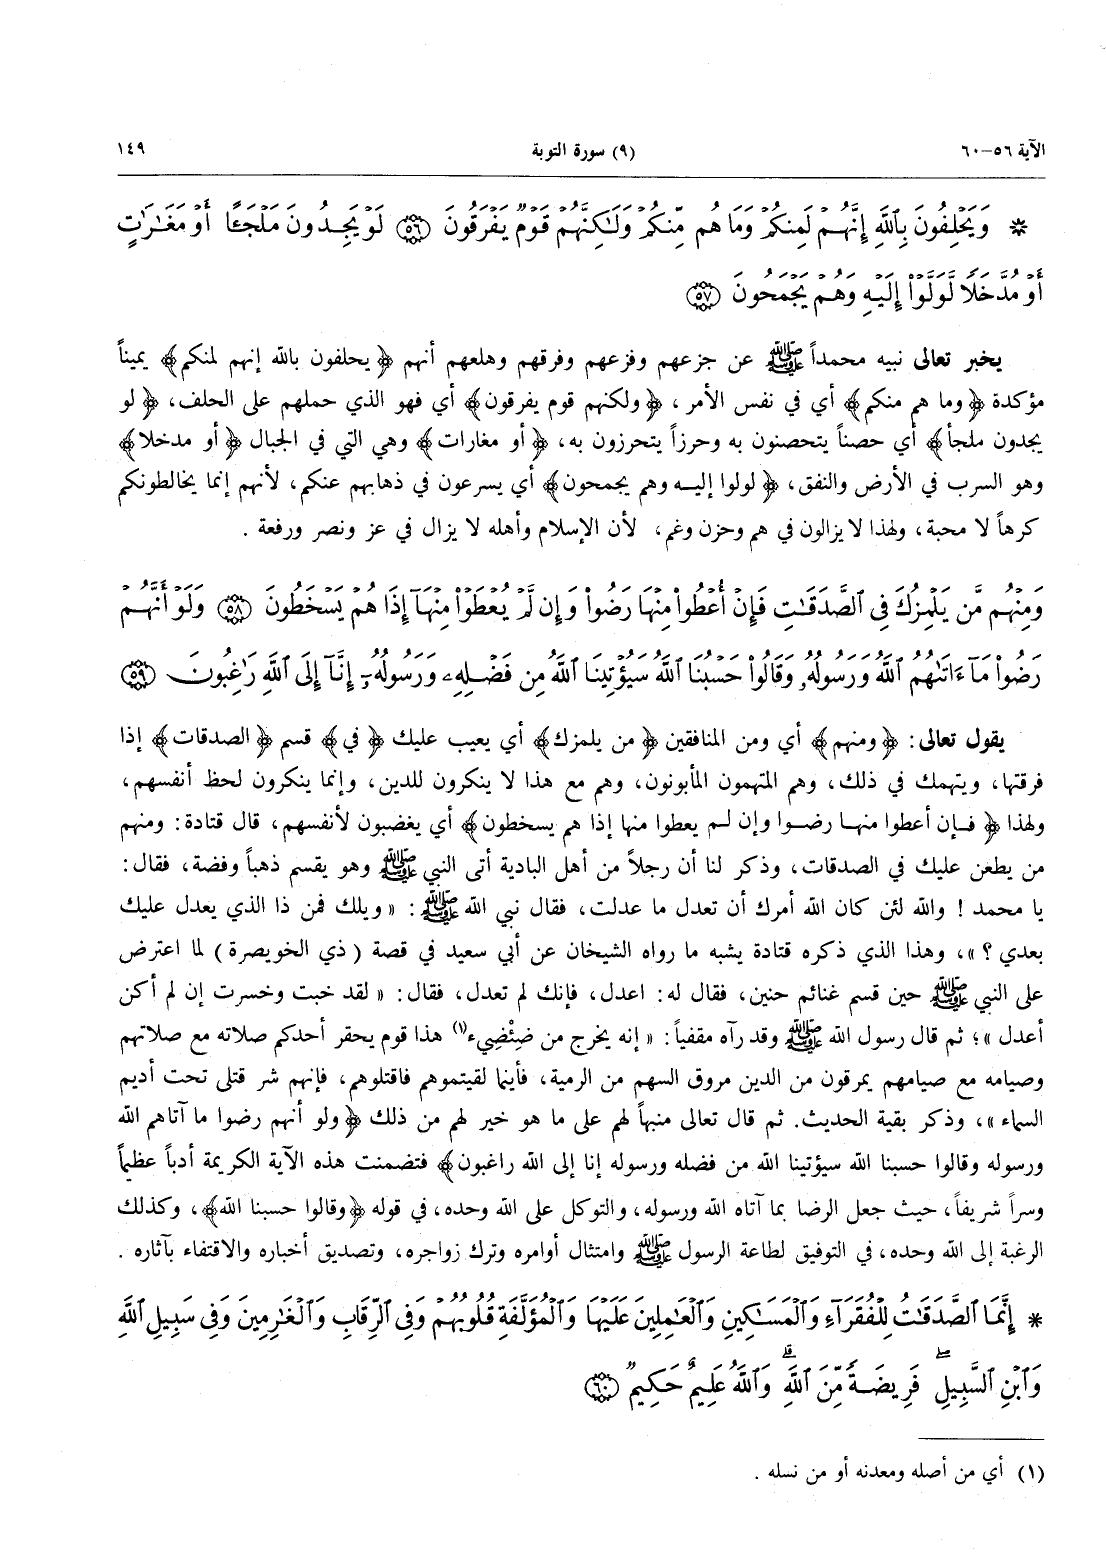 الآية ٥٦-٦٠ (٩) سورة التوبة ١٤٩
* وَيَحْلِفُونَ بِٱللَّهِ إِنَّهُمْ لَمِنكُمْ وَمَا هُم مِّنكُمْ وَلَـٰكِنَّهُمْ قَوْمٌ يَفْرَقُونَ ﴿٥٦﴾ لَوْ يَجِدُونَ مَلْجَـًٔا أَوْ مَغَـٰرَٰتٍ
أَوْ مُدَّخَلًا لَّوَلَّوْا۟ إِلَيْهِ وَهُمْ يَجْمَحُونَ ﴿٥٧﴾
يخبر تعالى نبيه محمداً ﷺ عن جزعهم وفزعهم وفرقهم وهلعهم أنهم ﴿يحلفون بالله إنهم لمنكم﴾ يميناً
مؤكدة ﴿وما هم منكم﴾ أي في نفس الأمر، ﴿ولكنهم قوم يفرقون﴾ أي فهو الذي حملهم على الحلف، ﴿لو
يجدون ملجأ﴾ أي حصناً يتحصنون به وحرزاً يتحرزون به، ﴿أو مغارات﴾ وهي التي في الجبال ﴿أو مدخلا﴾
وهو السرب في الأرض والنفق، ﴿لولوا إليه وهم يجمحون﴾ أي يسرعون في ذهابهم عنكم، لأنهم إنما يخالطونكم
كرهاً لا محبة، ولهذا لا يزالون في هم وحزن وغم، لأن الإسلام وأهله لا يزال في عز ونصر ورفعة .
وَمِنْهُم مَّن يَلْمِزُكَ فِى ٱلصَّدَقَـٰتِ فَإِنْ أُعْطُوا۟ مِنْهَا رَضُوا۟ وَإِن لَّمْ يُعْطَوْا۟ مِنْهَآ إِذَا هُمْ يَسْخَطُونَ ﴿٥٨﴾ وَلَوْ أَنَّهُمْ
رَضُوا۟ مَآ ءَاتَىٰهُمُ ٱللَّهُ وَرَسُولُهُۥ وَقَالُوا۟ حَسْبُنَا ٱللَّهُ سَيُؤْتِينَا ٱللَّهُ مِن فَضْلِهِۦ وَرَسُولُهُۥٓ إِنَّآ إِلَى ٱللَّهِ رَٰغِبُونَ ﴿٥٩﴾
يقول تعالى: ﴿ومنهم﴾ أي ومن المنافقين ﴿من يلمزك﴾ أي يعيب عليك ﴿في﴾ قسم ﴿الصدقات﴾ إذا
فرقتها، ويتهمك في ذلك، وهم المتهمون المأبونون، وهم مع هذا لا ينكرون للدين، وإنما ينكرون لحظ أنفسهم،
ولهذا ﴿فإن أعطوا منها رضوا وإن لم يعطوا منها إذا هم يسخطون﴾ أي يغضبون لأنفسهم، قال قتادة: ومنهم
من يطعن عليك في الصدقات، وذكر لنا أن رجلاً من أهل البادية أتى النبي ﷺ وهو يقسم ذهباً وفضة، فقال:
يا محمد ! والله لئن كان الله أمرك أن تعدل ما عدلت، فقال نبي الله ﷺ : « ويلك فمن ذا الذي يعدل عليك
بعدي ؟ »، وهذا الذي ذكره قتادة يشبه ما رواه الشيخان عن أبي سعيد في قصة ( ذي الخويصرة ) لما اعترض
على النبي ﷺ حين قسم غنائم حنين، فقال له: اعدل، فإنك لم تعدل، فقال: « لقد خبت وخسرت إن لم أكن
أعدل »؛ ثم قال رسول الله ﷺ وقد رآه مقفياً: « إنه يخرج من ضِئْضِيء(١) هذا قوم يحقر أحدكم صلاته مع صلاتهم
وصيامه مع صيامهم يمرقون من الدين مروق السهم من الرمية، فأينما لقيتموهم فاقتلوهم، فإنهم شر قتلى تحت أديم
السماء »، وذكر بقية الحديث. ثم قال تعالى منبهاً لهم على ما هو خير لهم من ذلك ﴿ولو أنهم رضوا ما آتاهم الله
ورسوله وقالوا حسبنا الله سيؤتينا الله من فضله ورسوله إنا إلى الله راغبون﴾ فتضمنت هذه الآية الكريمة أدباً عظيماً
وسراً شريفاً، حيث جعل الرضا بما آتاه الله ورسوله، والتوكل على الله وحده، في قوله ﴿وقالوا حسبنا الله﴾، وكذلك
الرغبة إلى الله وحده، في التوفيق لطاعة الرسول ﷺ وامتثال أوامره وترك زواجره، وتصديق أخباره والاقتفاء بآثاره .
* إِنَّمَا ٱلصَّدَقَـٰتُ لِلْفُقَرَآءِ وَٱلْمَسَـٰكِينِ وَٱلْعَـٰمِلِينَ عَلَيْهَا وَٱلْمُؤَلَّفَةِ قُلُوبُهُمْ وَفِى ٱلرِّقَابِ وَٱلْغَـٰرِمِينَ وَفِى سَبِيلِ ٱللَّهِ
وَٱبْنِ ٱلسَّبِيلِ ۖ فَرِيضَةً مِّنَ ٱللَّهِ ۗ وَٱللَّهُ عَلِيمٌ حَكِيمٌ ﴿٦٠﴾
(١) أي من أصله ومعدنه أو من نسله .